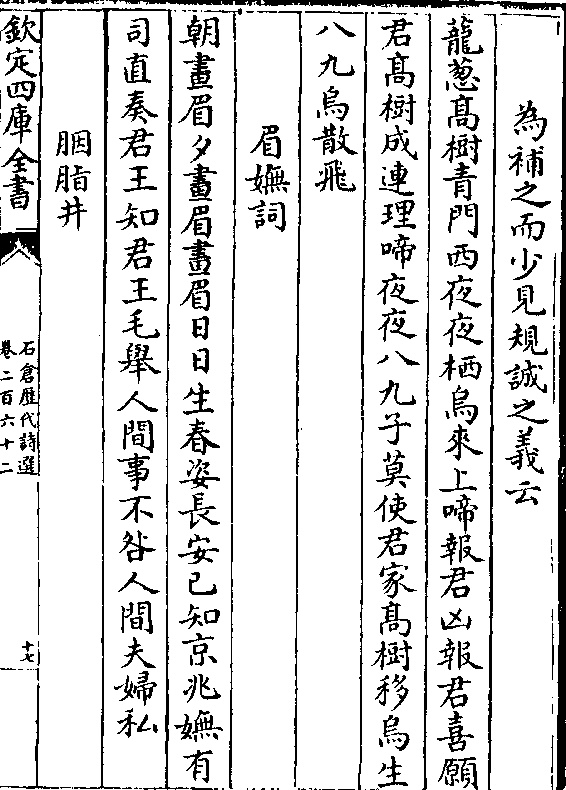 為補之而少見規誠之義云
蘢葱髙樹青門西夜夜栖烏來上啼報君凶報君喜願
君髙樹成連理啼夜夜八九子莫使君家髙樹移烏生
八九烏散飛
眉嫵詞
朝畫眉夕畫眉畫眉日日生春姿長安已知京兆嫵有
司直奏君王知君王毛舉人間事不咎人間夫婦私
胭脂井
欽定四庫全書
石倉歷代詩選
卷二百六十二
十七